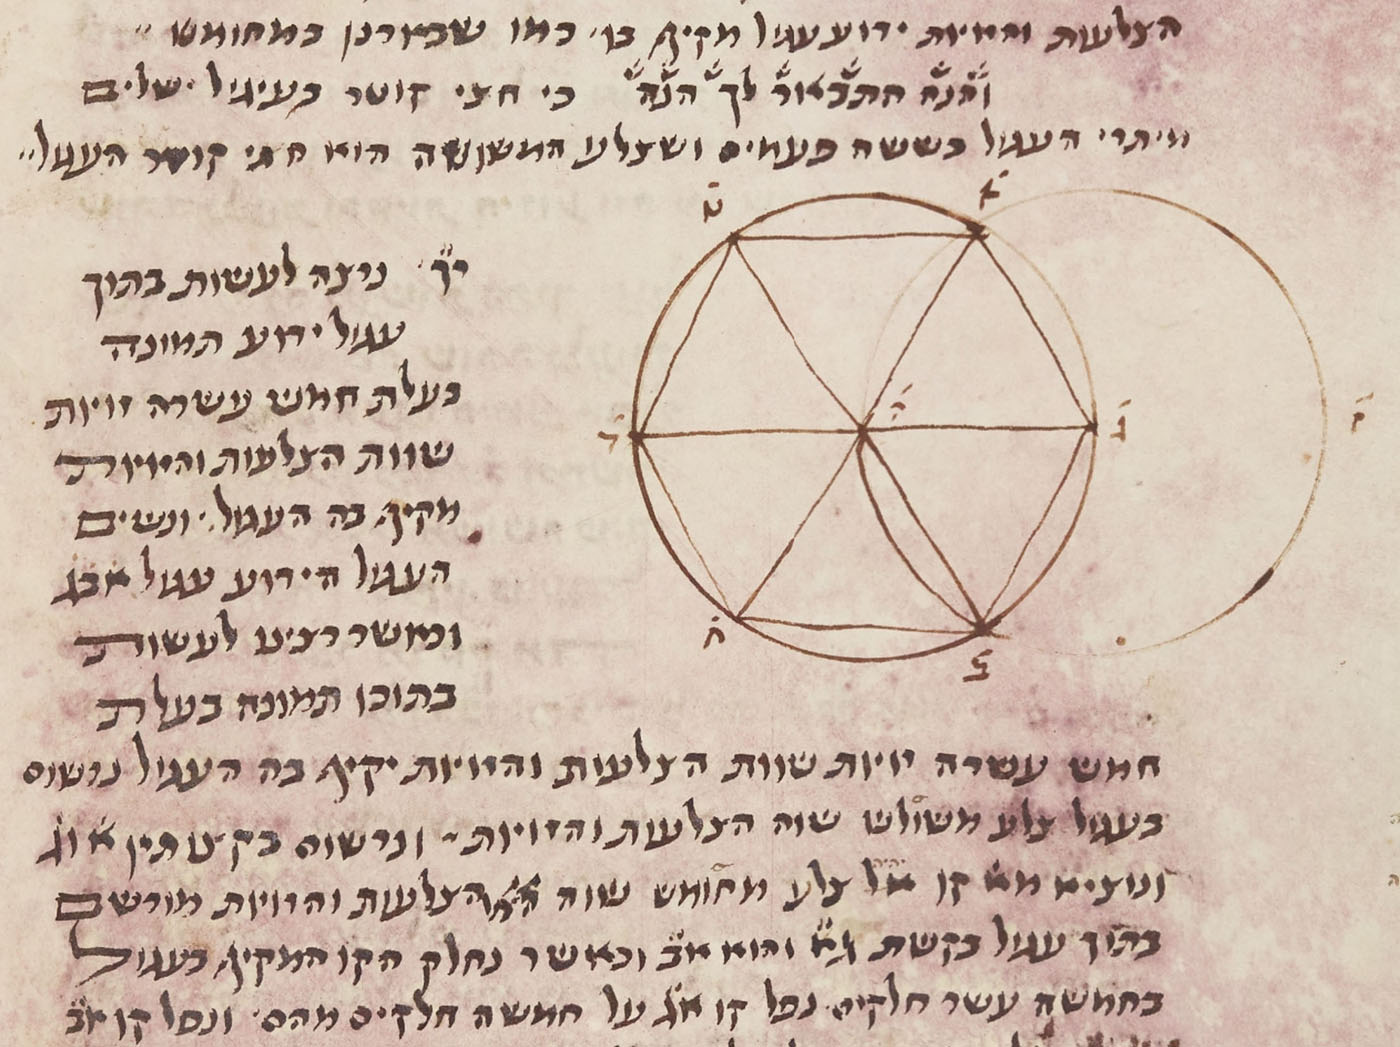 הצלעות והזויות ידוע עגול מקיף בו׳ כמו שביארנו במחומש ״
והנה התבאר לך הנה כי חצי קוטר בעיגול ישלים
מיתרי העגול בששה פעמים ושצלע המשושה הוא חצי קוטר העגול״
א
ט
ה
ג
ד
ח
ב
י״ו נרצה לעשות בתוך
עגול ידוע תמונה
בעלת חמש עשרה זויות
שוות הצלעות והזויות
מקיף בה העגול׳ ונשים
העגול הידוע עגול אבג
וכאשר רצינו לעשות
בתוכו תמונה בעלת
חמש עשרה זויות שוות הצלעות והזויות יקיף בה העגול נרשום
בעגול צלע משולש שוה הצלעות והזויות׳ ונרשום בקצותיו א וג
ונוציא מא קו אל צלע מחומש שוה הצלעות והזויות מורשם
בתוך עגול בקשת גא והוא אב וכאשר נחלק הקו המקיף בעגול
בחמשה עשר חלקים׳ נפל קו אג על חמשה חלקים מהם׳ ונפל קו אב